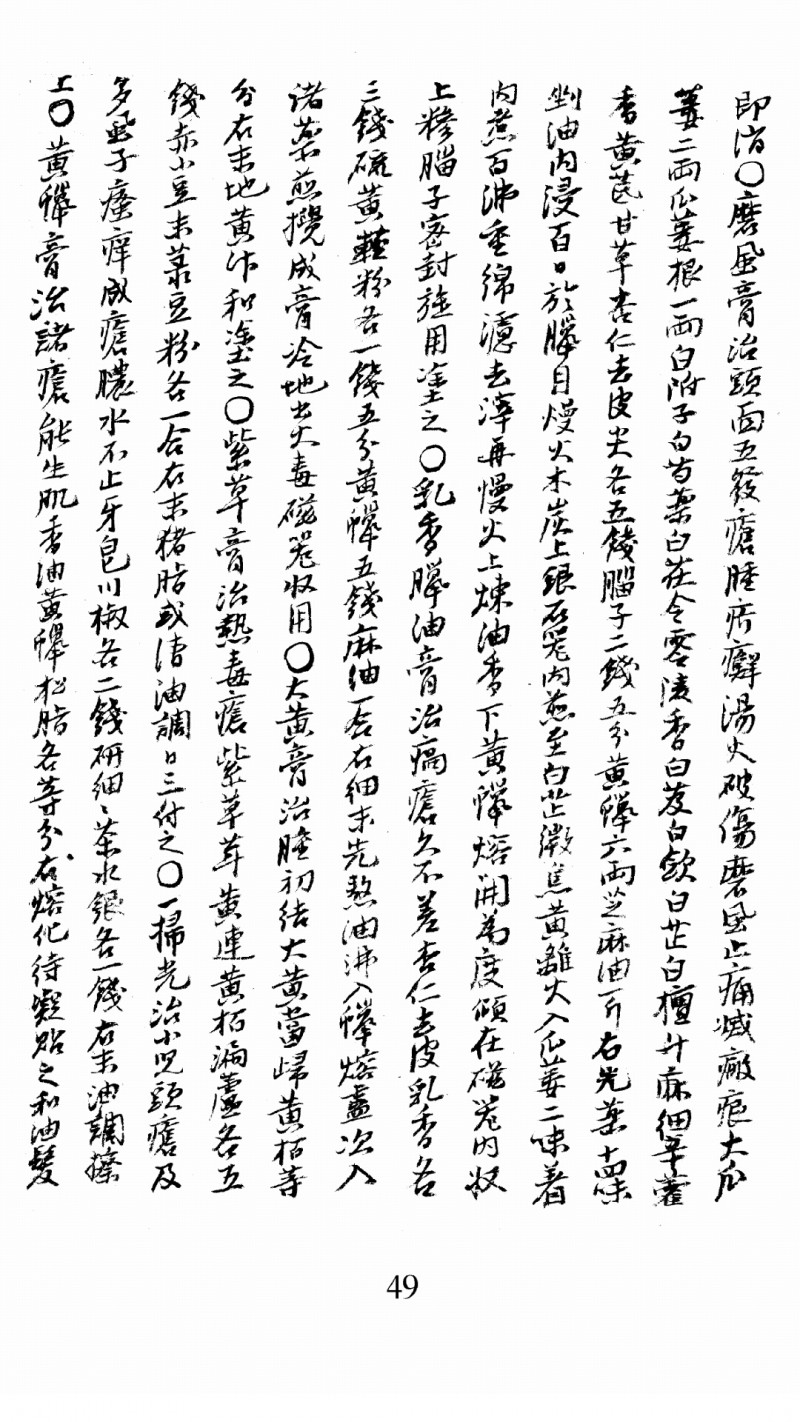 即消〇磨風膏治頭面五發瘡腫疥癬湯火破傷磨風止痛滅瘢痕大瓜
蔞二兩瓜蔞根一兩白附子白芍藥白茯苓零陵香白芨白歛白芷白檀升麻細辛藿
香黃芪甘草杏仁去皮尖各五錢腦子二錢五分黃蠟六兩芝麻油一斤右先藥十四味
剉油內浸百日於臘日熳火木炭上銀石器內煎至白芷微焦黃離火入瓜蔞二味着
內煎百沸重綿濾去滓再慢火上煉油香下黃蠟熔開為度傾在磁器內收
上糝腦子密封旋用塗之〇乳香臘油膏治瘑瘡久不差杏仁去皮乳香各
三錢硫黃輕粉各一錢五分黃蠟五錢麻油一合右細末先熬油沸入蠟熔盡次入
諸藥煎攪成膏冷地出火毒磁器收用〇大黃膏治腫初結大黃當歸黃栢等
分右末地黃汁和塗之〇紫草膏治熱毒瘡紫草茸黃連黃栢漏蘆各五
錢赤小豆末菉豆粉各一合右末猪脂或清油調日三付之〇一掃光治小兒頭瘡及
多虱子瘙痒成瘡膿水不止牙皂川椒各二錢研細〻茶水銀各一錢右末油調搽
上〇黃蠟膏治諸瘡能生肌香油黃蠟松脂各等分右熔化待凝貼之和油髮
49